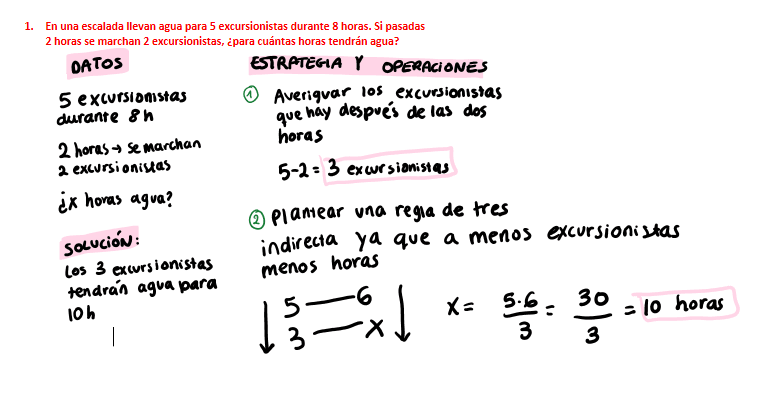 1. En una escalada llevan agua para 5 excursionistas durante 8 horas. Si pasadas
2 horas se marchan 2 excursionistas, ¿para cuántas horas tendrán agua?
DATOS
5 excursionistas
durante 8h
2 horas → se marchan
2 excursionistas
¿x horas agua?
SOLUCIÓN:
Los 3 excursionistas
tendrán agua para
10h
ESTRATEGIA Y OPERACIONES
① Averiguar los excursionistas
que hay después de las dos
horas
5-2 = 3 excursionistas
② Plantear una regla de tres
indirecta ya que a menos excursionistas
menos horas
↓ 5 — 6 ↓
3 — x
x = 5·6/3 = 30/3 = 10 horas